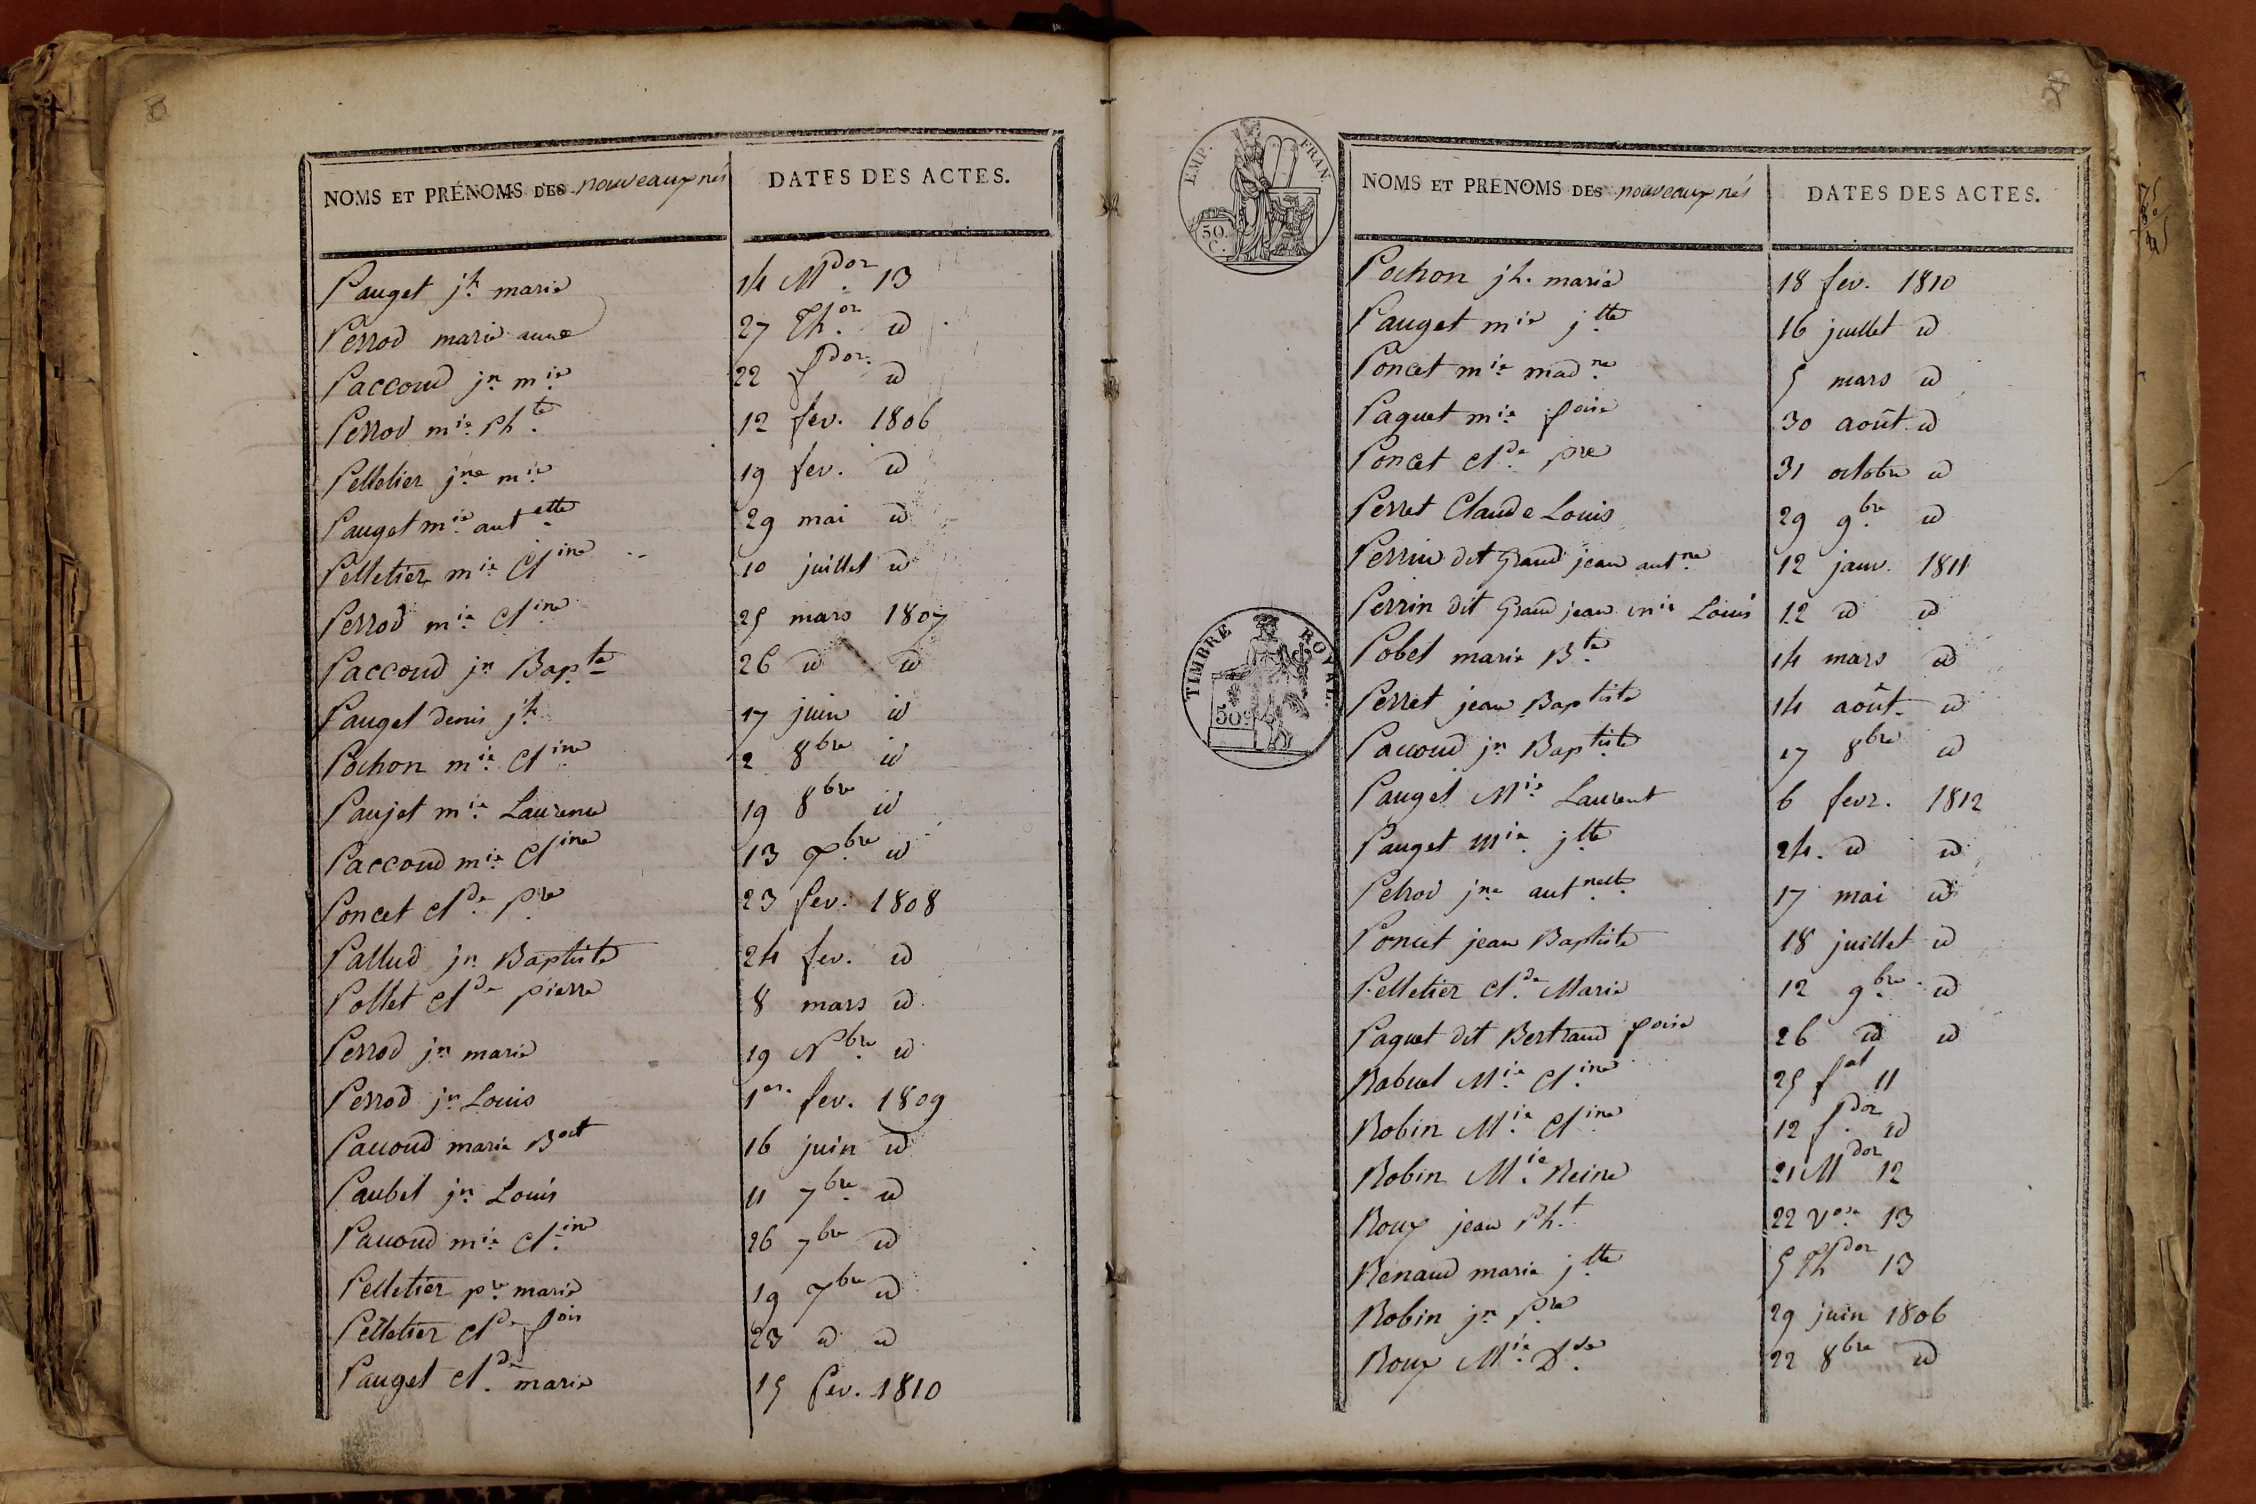 NOMS ET PRÉNOMS DES nouveaux nés DATES DES ACTES.
Pauget jh marie 14 Mdor 13
Perrod marie anne 27 Thor id
Paccoud jn mie 22 fdor id
Perrod mie Phte 12 fev. 1806
Pelletier jne mie 19 fev. id
Pauget mie antette 29 mai id
Pelletier mie Cline 10 juillet id
Perrod mie Cline 25 mars 1807
Paccoud jn Bapte 26 id id
Pauget denis jh 17 juin id
Pochon mie Cline 2 8bre id
Paujet mie Laurence 19 8bre id
Paccoud mie Cline 13 Xbre id
Poncet Clde Pre 23 fev. 1808
Pallud jn Baptiste 24 fev. id
Pollet Clde pierre 8 mars id
Perrod jn marie 19 Nbre id
Perrod jn Louis 1er fev. 1809
Pacoud marie Boit 16 juin id
Paubel jn Louis 11 7bre id
Pacoud mie Cline 26 7bre id
Pelletier pre marie 19 Xbre id
Pelletier Clde fois 23 id id
Pauget Clde marie 15 fev. 1810
EMP. FRAN.
50. C.
TIMBRE ROYAL.
50c
NOMS ET PRÉNOMS DES nouveaux nés DATES DES ACTES.
Pochon jh. marie 18 fev. 1810
Pauget mie jtte 16 juillet id
Poncet mie madne 5 mars id
Paquet mie foise 30 août id
Poncet Clde pre 31 octobre id
Perret Claude Louis 29 9bre id
Perrin dit Grand jean antne 12 janv. 1811
Perrin dit Grand jean mie Louis 12 id id
Pobel marie Bte 14 mars id
Perret jean Baptiste 14 août id
Pacoud jn Baptiste 17 8bre id
Pauget Mie Laurent 6 fevr. 1812
Pauget mie jtte 24. id id
Petrod jne antnette 17 mai id
Poncet jean Baptiste 18 juillet id
Pelletier Clde Marie 12 9bre id
Paquet dit Bertrand foise 26 id id
Rabuel Mie Cline 25 fal 11
Robin Mie Cline 12 fdor id
Robin Mie Reine 21 Mdor 12
Roux jean Pht 22 Vose 13
Renaud marie jtte 5 Thdor 13
Robin jn Pre 29 juin 1806
Roux Mie Dse 22 8bre id